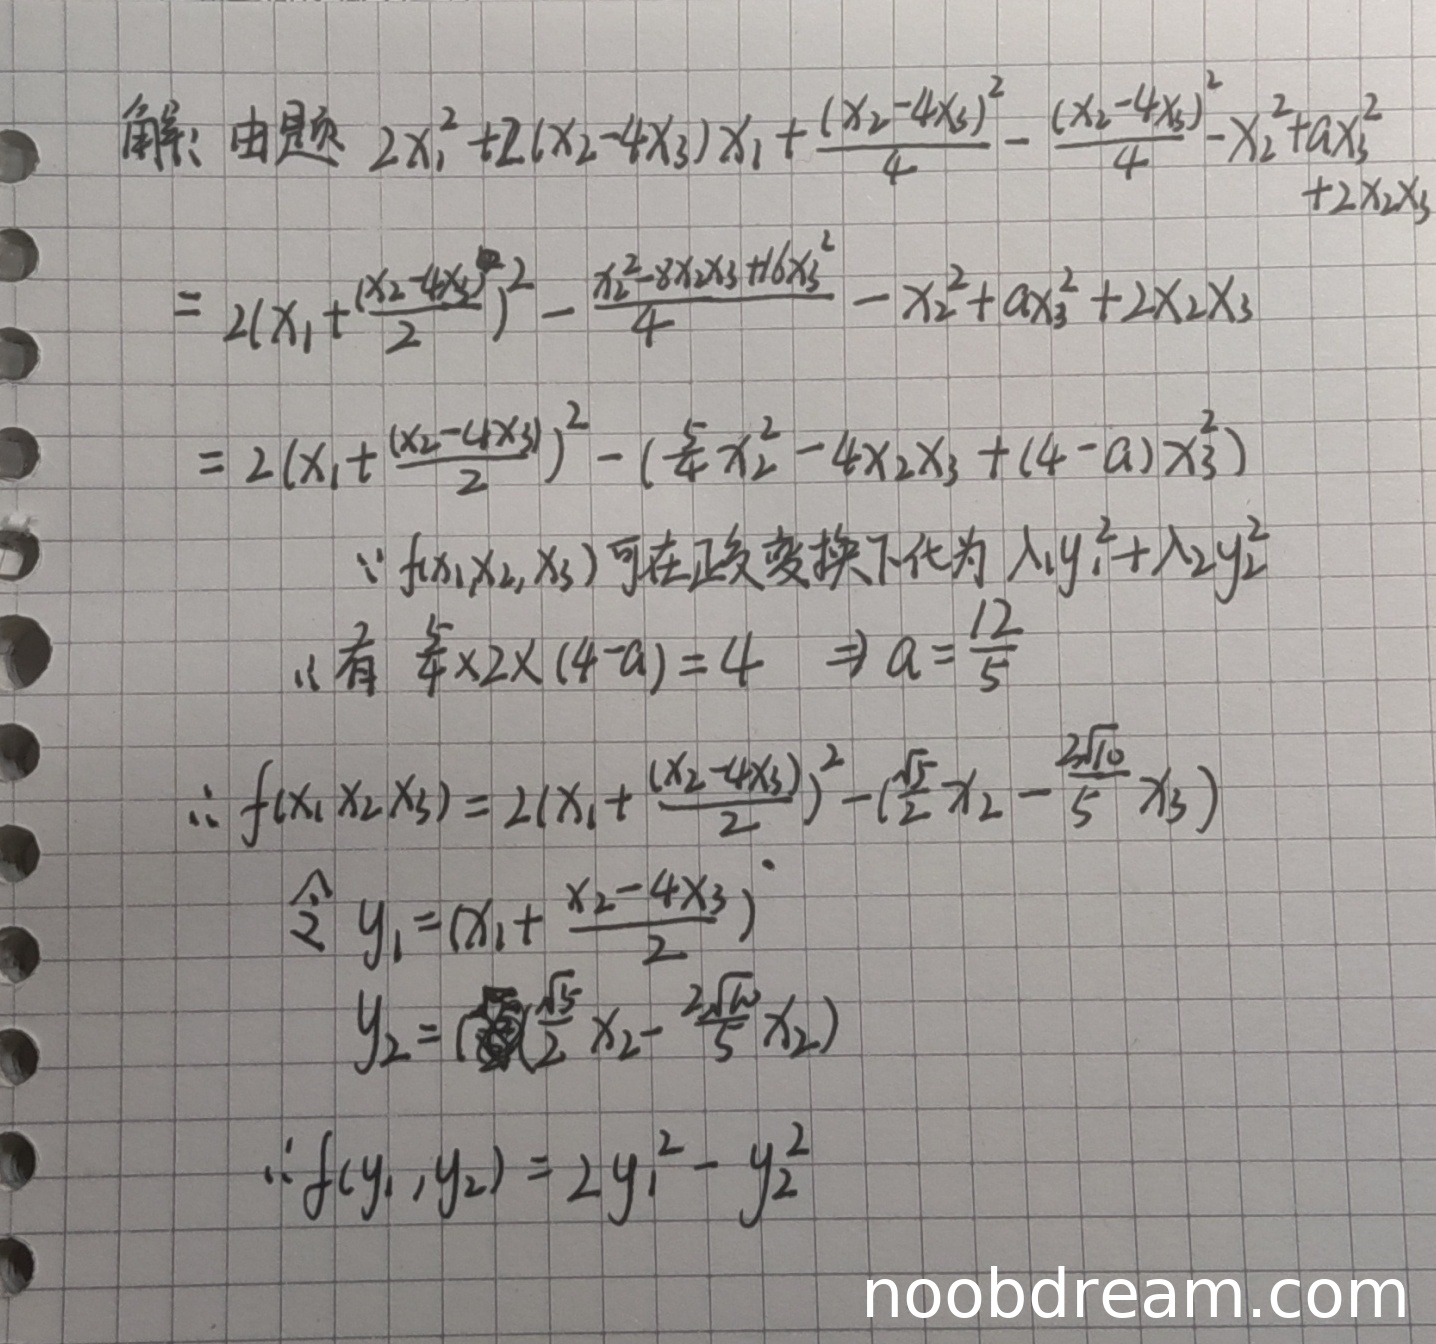 解: 由题 2x₁²+2(x₂-4x₃)x₁+(x₂-4x₃)²/4-(x₂-4x₃)²/4-x₂²+ax₃²
+2x₂x₃
=2(x₁+(x₂-4x₃)/2)²-(x₂²-8x₂x₃+16x₃²)/4-x₂²+ax₃²+2x₂x₃
=2(x₁+(x₂-4x₃)/2)²-(5/4x₂²-4x₂x₃+(4-a)x₃²)
∵f(x₁,x₂,x₃)可在正交变换下化为λ₁y₁²+λ₂y₂²
∴有 5/4×2×(4-a)=4 ⇒a=12/5
∴f(x₁x₂x₃)=2(x₁+(x₂-4x₃)/2)²-(√5/2x₂-2√10/5x₃)
令 y₁=(x₁+(x₂-4x₃)/2)
y₂=(√5/2x₂-2√10/5x₂)
∴f(y₁,y₂)=2y₁²-y₂²
noobdream.com